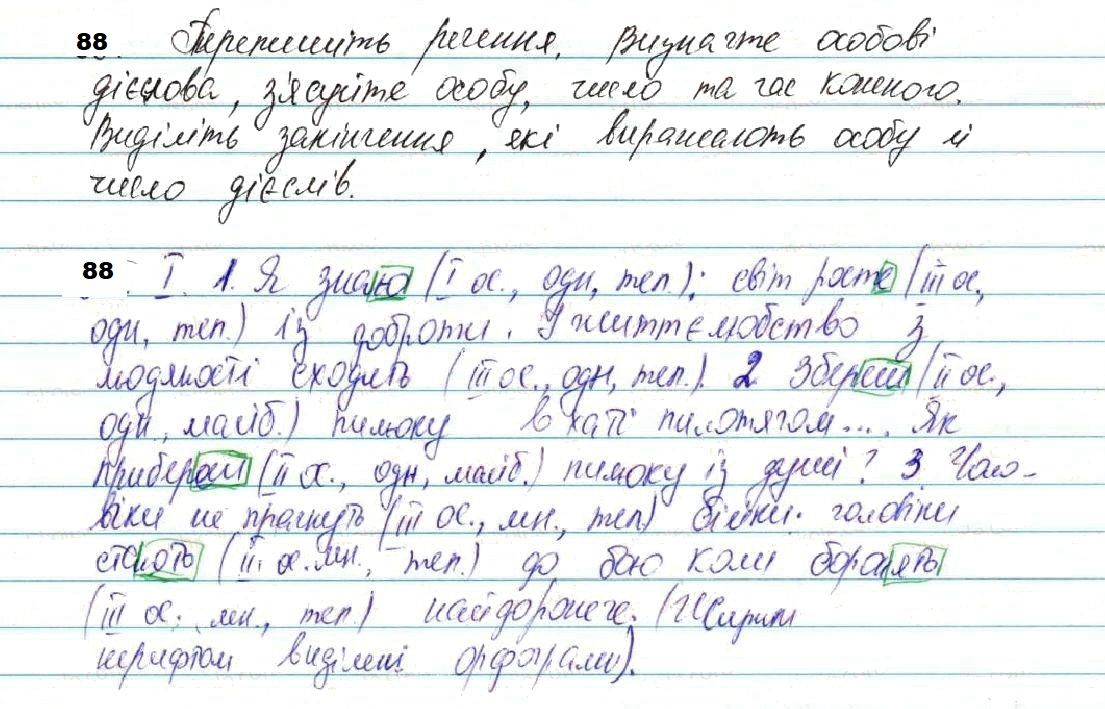 88. Перепишіть речення. Визначте особові
дієслова, з'ясуйте особу, число та час кожного.
Виділіть закінчення, які виражають особу й
число дієслів.
88. І. 1. Я знаю (І ос., одн, теп.): світ росте (ІІІ ос,
одн, теп.) із доброти. І життєлюбство з
людяності сходить (ІІІ ос., одн, теп.). 2 Збереш (ІІ ос.,
одн., майб.) пилюку в хаті пилотягом.... Як
прибереш (ІІ ос., одн, майб.) пилюку із душі? 3. Чоло-
віки не прагнуть (ІІІ ос., мн., теп) бійки. чоловіки
стають (ІІ. ос. мн., теп.) до бою коли боронять
(ІІІ ос., мн., теп.) найдорожче. (Жирним
шрифтом виділені орфограми).